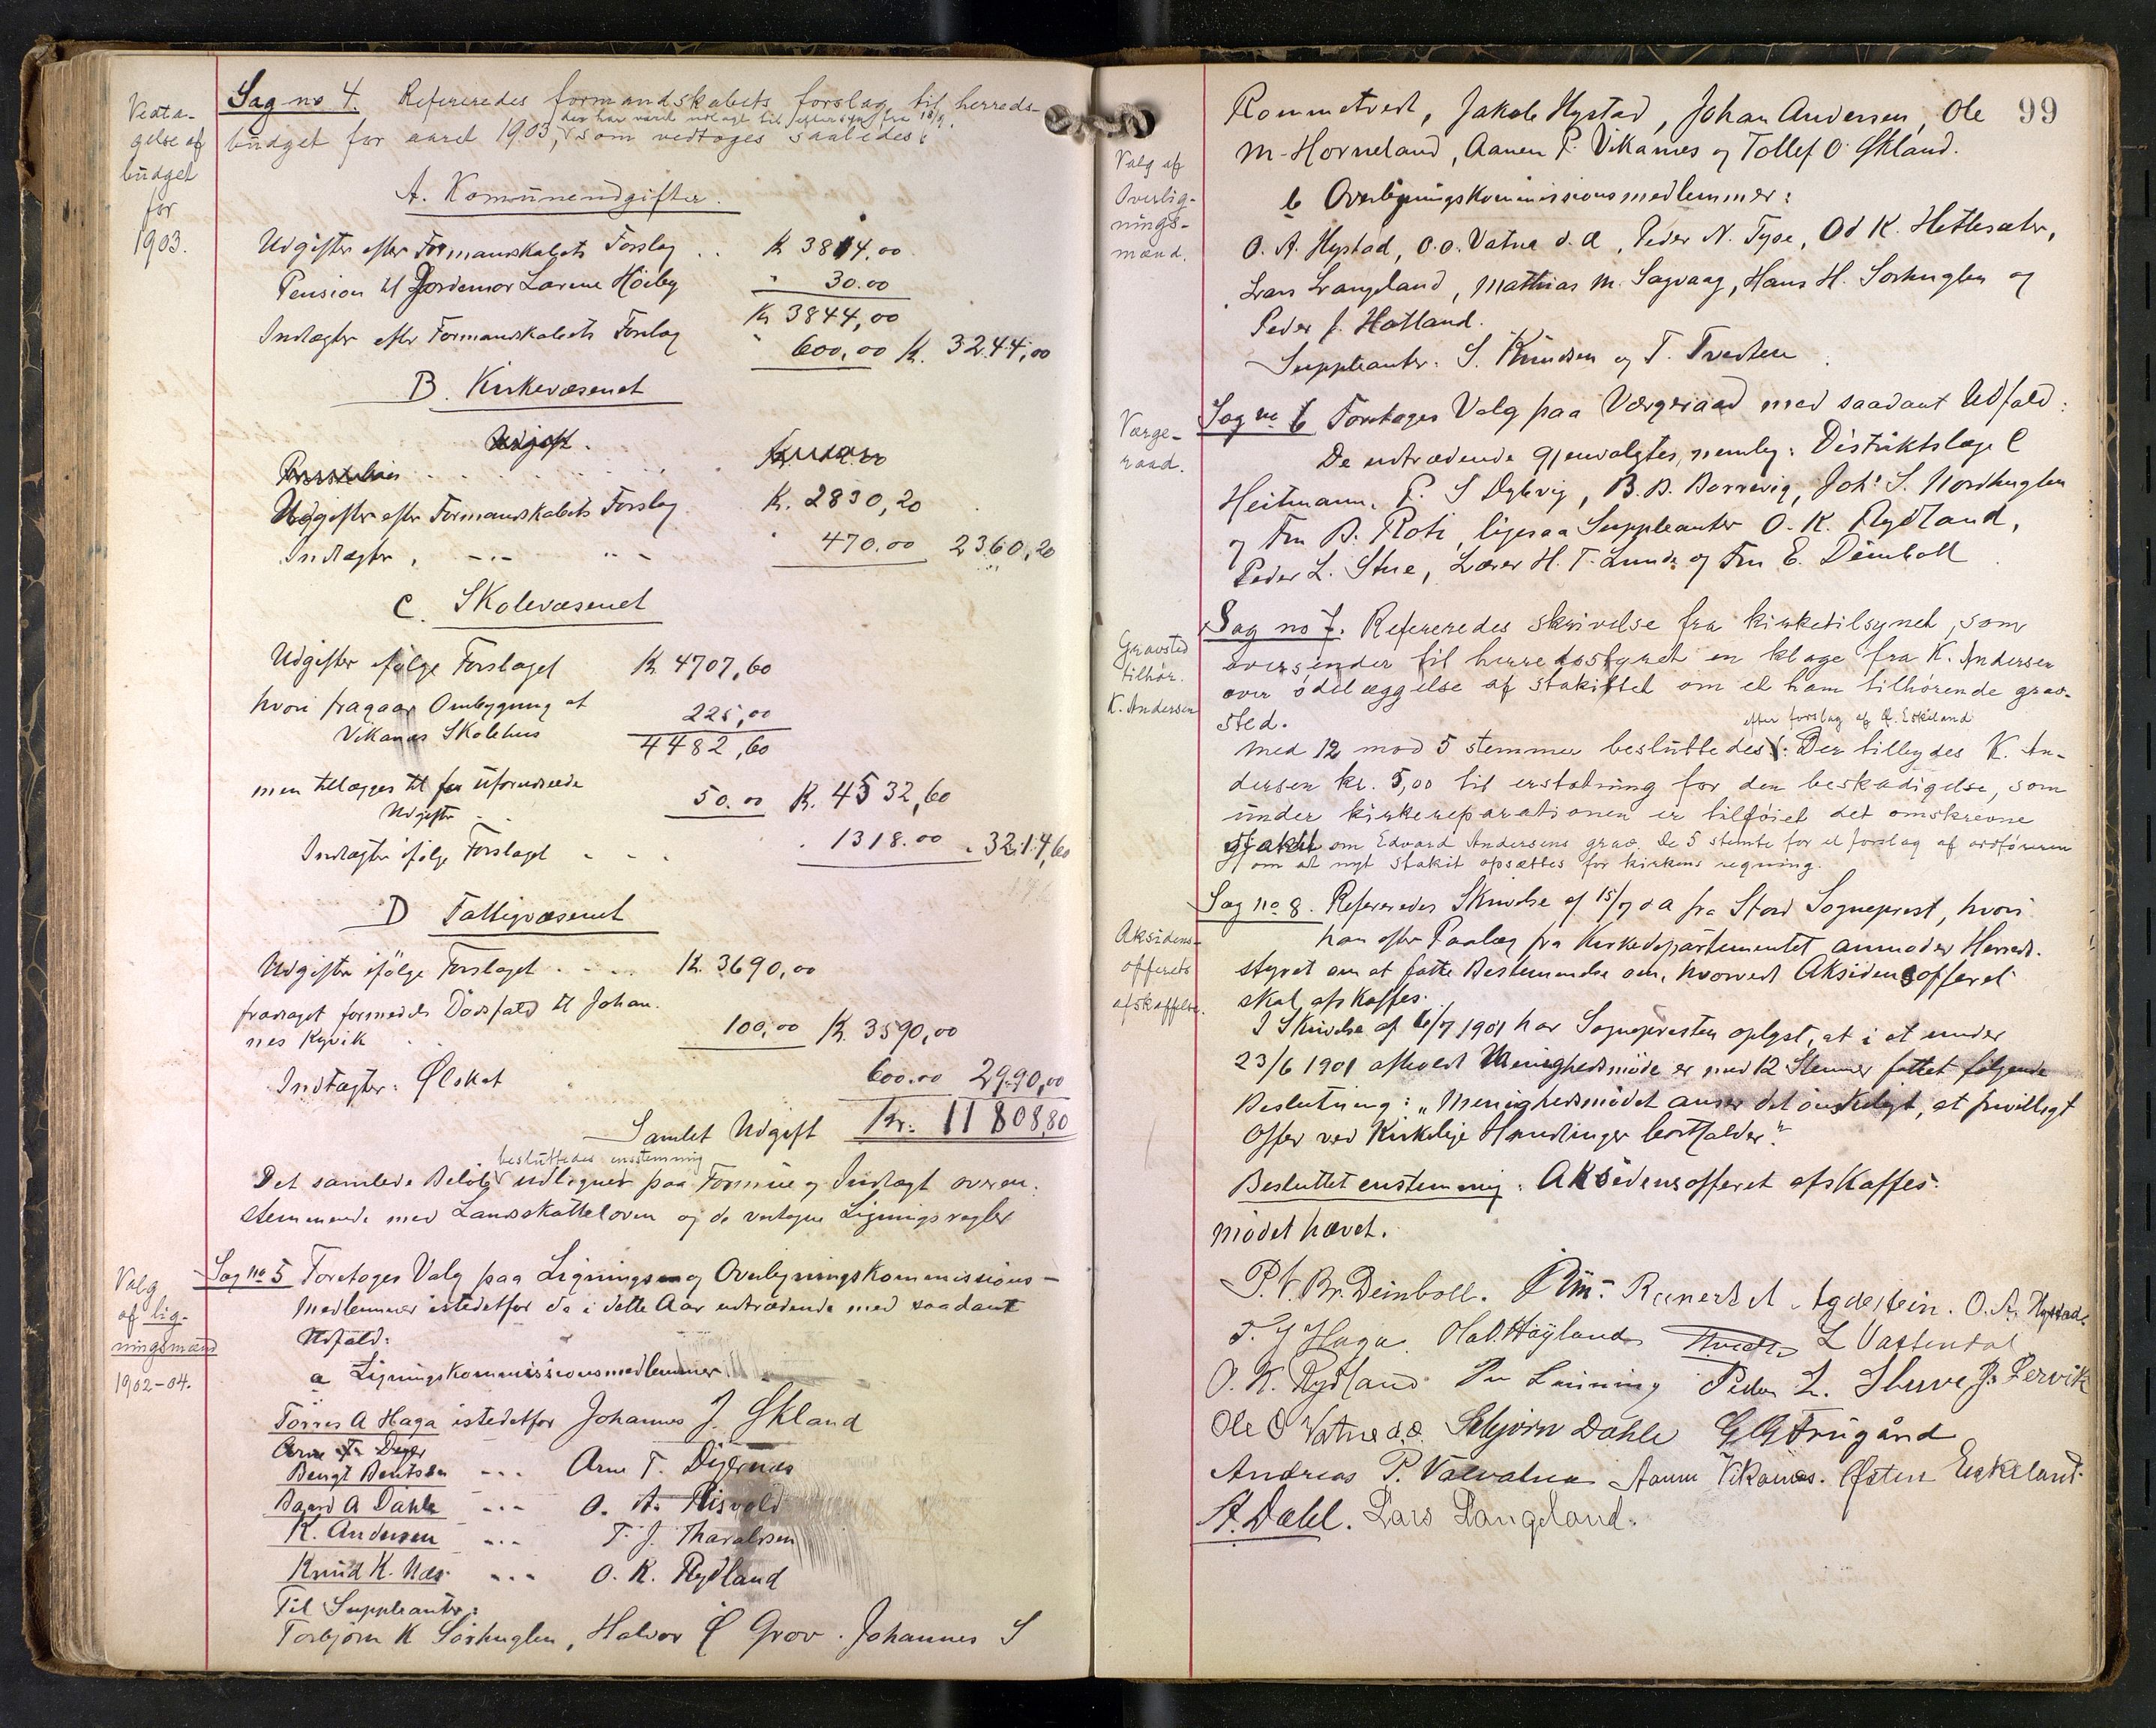 Vedta-
gelse af
budget
for
1903.
Sag no 4. Refereredes formandskabets forslag til herreds-
der har været udlagt til eftersyn fra 18/9,
budget for aaret 1903, som vedtoges saaledes:
A. Komuneudgifter.
Udgifter efter Formanskabets Forslag .. K 3814,00
Pension til Jordemor Lovise Höiby " 30.00
Kr 3844,00
Indtægter efter Formanskabets Forslag " 600,00 K. 3244,00
B. Kirkevæsenet
Udgift.
Udgifter efter Formanskabets Forslag K. 2830,20
Indtægter, -..- ..- " 470.00 2360,20
C. Skolevæsenet
Udgifter ifølge Forslaget K 4707,60
hvori fragaar Ombygning af
Vikanæs Skolehus 225,00
4482,60
men tillægges til for uforudseede
Udgifter .. 50.00 K. 4532,60
Indtægter ifølge Forslaget - - . 1318.00 . 3214,60
D Fattigvæsenet
Udgifter ifölge Forslaget .... K. 3690,00
fradraget formedels Dödsfald til Johan-
nes Kyvik 100,00 K. 3590,00
Indtægter: Ølskat 600.00 2990,00
Samlet Udgift Kr. 11808,80
besluttedes enstemmig
Det samlede Beløb udlignet paa Formue og Indtægt overen-
stemmende med Landsskatteloven og de vedtagne Ligningsregler
Valg
af lig-
ningsmænd
1902-04.
Sag no 5 Foretoges Valg paa Lignings- og Overligningskommissions-
Medlemmer istedetfor de i dette Aar udtrædende med saadant
Udfald:
a Ligningskommissionsmedlemmer
Tørres A Haga istedetfor Johannes J. Økland
Bengt Bentsen -.- Arne T. Digernæs
Baard A Dahle -.- O. A. Risvold
K. Andersen -.- T. J. Tharaldsen
Knud K. Næs -.- O. K. Rydland
Til Suppleanter:
Torbjörn K Sørhuglen, Halvor Ø Grov. Johannes S
99
Rommetvedt, Jakob Hystad, Johan Andersen, Ole
M. Horneland, Aanen P. Vikanes og Tollef O. Økland.
Valg af
Overlig-
nings-
mænd.
b Overligningskommissionsmedlemmer:
O. A. Hystad, O. O. Vatna d. a, Peder N. Tyse, Od K. Hettesæter,
Lars Langeland, Mathias M. Sagvaag, Hans H. Sørhuglen og
Peder J. Hatland.
Suppleanter: S. Knudsen og T. Tvedten
Værge-
raad.
Sag no 6 Foretoges Valg paa Værgeraad med saadant Udfald:
De udtrædende gjenvalgtes, nemlig: Distriktslæge C
Heitmann, P. S Dybvig, B. B. Børrevig, Johs S. Nordhuglen
og Fru B. Roti, ligesaa Suppleanter O. K. Rydland,
Peder L. Stue, Lærer H. T. Lunde og Fru E. Deinboll
Gravsted
tilhør.
K. Andersen
Sag no 7. Refereredes skrivelse fra kirketilsynet, som
oversender til herredsstyret en klage fra K. Andersen
over ødelæggelse af stakittet om et ham tilhørende grav-
sted.
efter forslag af Ø. Eskeland
Med 12 mod 5 stemmer besluttedes: Der tilbydes K. An-
dersen kr. 5,00 til erstatning for den beskadigelse, som
under kirkereparationen er tilføiet det omskrevne
stakit om Edvard Andersens grav. De 5 stemte for et forslag af ordføreren
om at nyt stakit opsættes for kirkens regning.
Aksidens-
offerets
afskaffelse.
Sag no 8. Refereredes Skrivelse af 15/7 d a fra Stord Sogneprest, hvori
han efter Paalæg fra Kirkedepartementet anmoder Herreds-
styret om at fatte Bestemmelse om, hvorvidt Aksidensofferet
skal afskaffes.
I Skrivelse af 6/7 1901 har Sognepresten oplyst, at i et under
23/6 1901 afholdt Menighedsmöde er med 12 Stemmer fattet følgende
Beslutning: "Menighedsmödet anser det önskeligt, at frivilligt
Offer ved Kirkelige Handlinger bortfalder."
Besluttet enstemmig: Aksidensofferet afskaffes.
Mödet hævet.
P. V. Br. Deinboll. Reinert A Agdestein. O. A. Hystad.
T. J Haga. Ola O. Høyland L Vattendal
O. K. Rydland Leining Peder L. Stuve J. Lervik
Ole O Vatna d.e. Asbjörn Dahle G G Frugård
Andreas P. Valvatna Aanen Vikanes. Østen Eskeland.
A. Dahl. Lars Langeland.